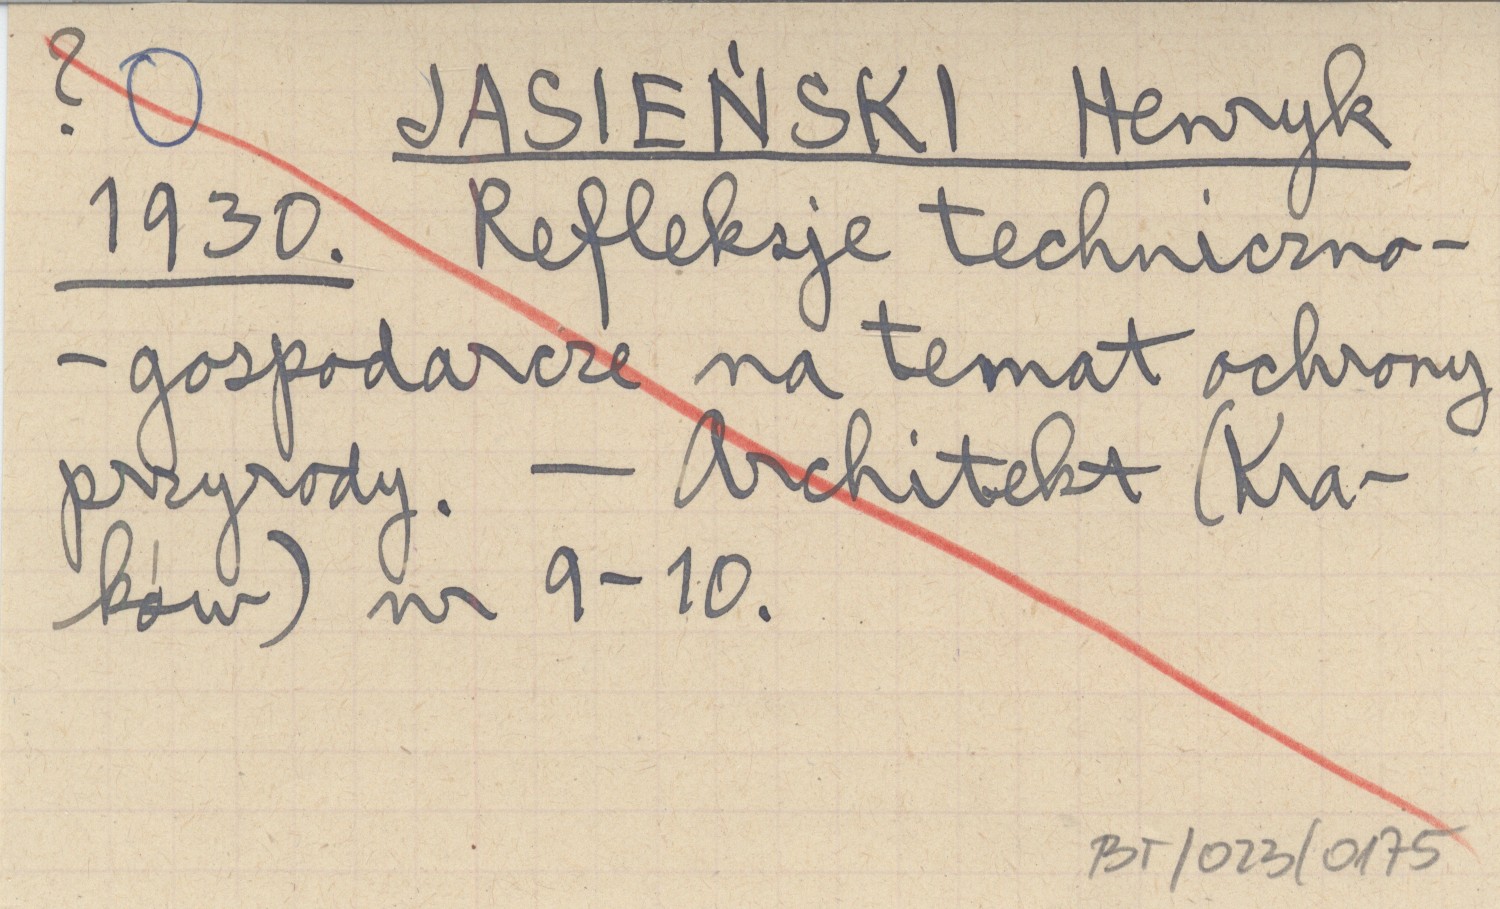 ? O JASIEŃSKI Henryk
1930. Refleksje techniczno-
-gospodarcze na temat ochrony
przyrody. — Architekt (Kra-
ków) nr 9-10.
BT/023/0175